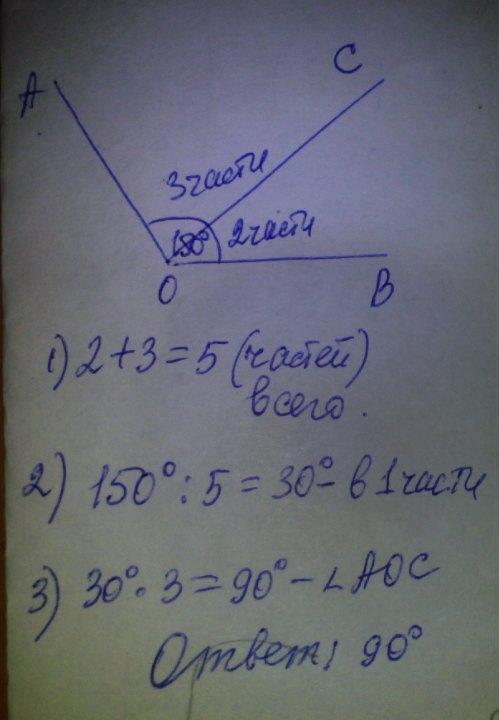 C
A
3 части
150° 2 части
O
B
1) 2+3=5 (частей)
всего.
2) 150°:5=30° - в 1 части
3) 30°·3=90° - ∠AOC
Ответ: 90°